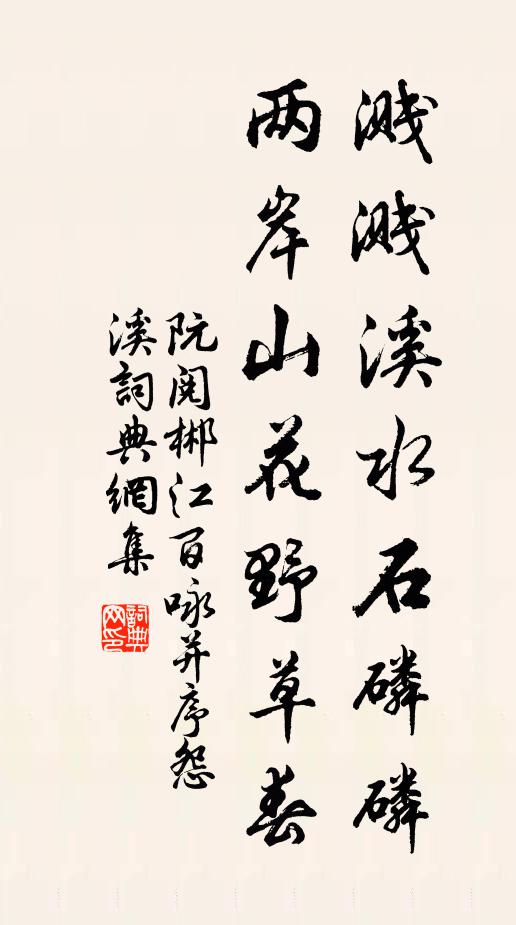 溅溅溪水石磷磷
两岸山花野草春
阮阅郴江百咏并序怨
溪詞典網集
詞典网印